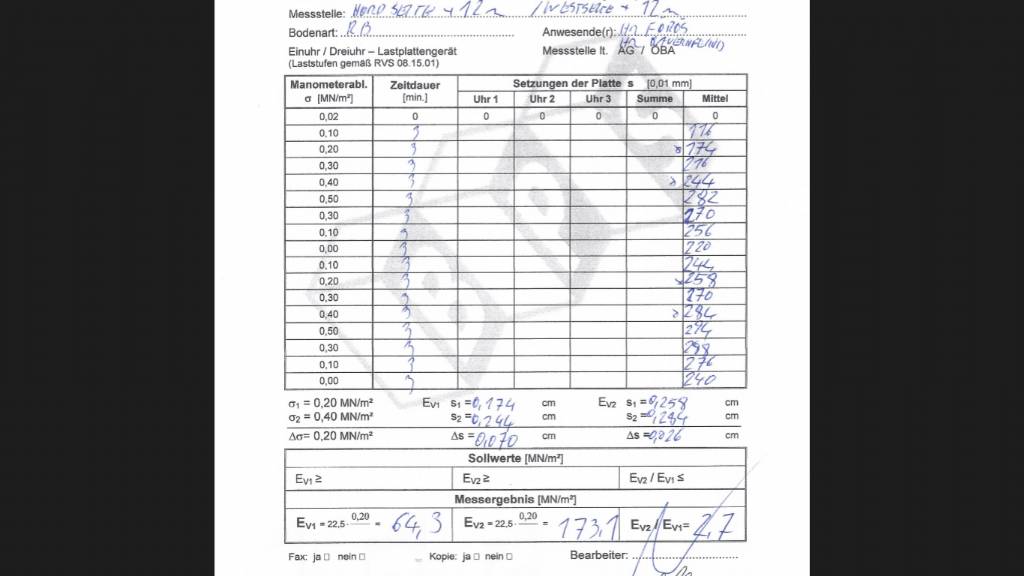 Messstelle: NORDSEITE + 12m / WESTSEITE + 12m
Bodenart: RB Anwesende(r): Hr. FOROS
Hr.
Einuhr / Dreiuhr – Lastplattengerät Messstelle lt. AG / ÖBA
(Laststufen gemäß RVS 08.15.01)
Manometerabl. Zeitdauer Setzungen der Platte s [0,01 mm]
σ [MN/m²] [min.] Uhr 1 Uhr 2 Uhr 3 Summe Mittel
0,02 0 0 0 0 0 0
0,10 3 116
0,20 3 174
0,30 3 216
0,40 3 244
0,50 3 282
0,30 3 270
0,10 3 256
0,00 3 220
0,10 3 244
0,20 3 258
0,30 3 270
0,40 3 284
0,50 3 294
0,30 3 288
0,10 3 276
0,00 3 240
σ1 = 0,20 MN/m² EV1 s1 = 0,174 cm EV2 s1 = 0,258 cm
σ2 = 0,40 MN/m² s2 = 0,244 cm s2 = 0,284 cm
Δσ= 0,20 MN/m² Δs = 0,070 cm Δs = 0,026 cm
Sollwerte [MN/m²]
EV1 ≥ EV2 ≥ EV2 / EV1 ≤
Messergebnis [MN/m²]
EV1 = 22,5· 0,20 = 64,3 EV2 = 22,5· 0,20 = 173,1 EV2 / EV1 = 2,7
Fax: ja □ nein □ Kopie: ja □ nein □ Bearbeiter: